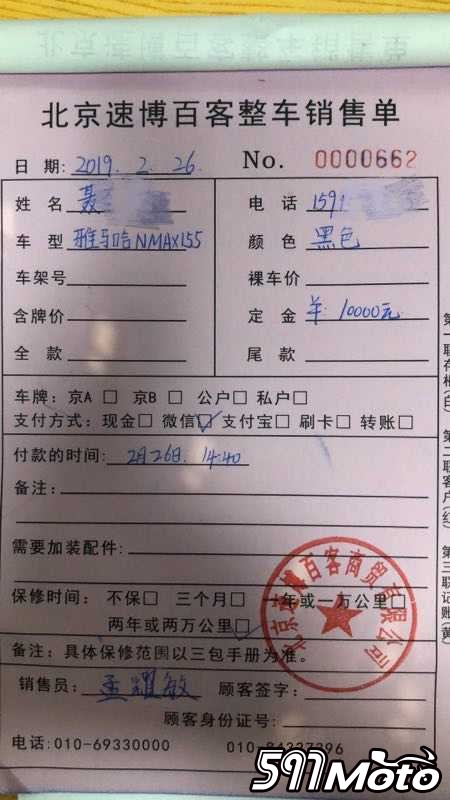 北京速博百客整车销售单
日期: 2019. 2. 26. No. 0000662
姓名 聂 电话 1591
车型 雅马哈NMAX155 颜色 黑色
车架号 裸车价
含牌价 定金 ¥ 10000元
全款 尾款
车牌: 京A □ 京B □ 公户□ 私户□
支付方式: 现金□ 微信☑ 支付宝□ 刷卡□ 转账□
付款的时间: 2月26日. 14:40
备注:
需要加装配件:
保修时间: 不保□ 三个月□ 一年或一万公里□
两年或两万公里☑
备注: 具体保修范围以三包手册为准。
销售员: 耀敏 顾客签字:
顾客身份证号:
电话: 010-69330000 010-84327396
北京速博百客商贸有限公司
第一联存根(白)
第二联客户(红)
第三联记账(黄)
597Moto